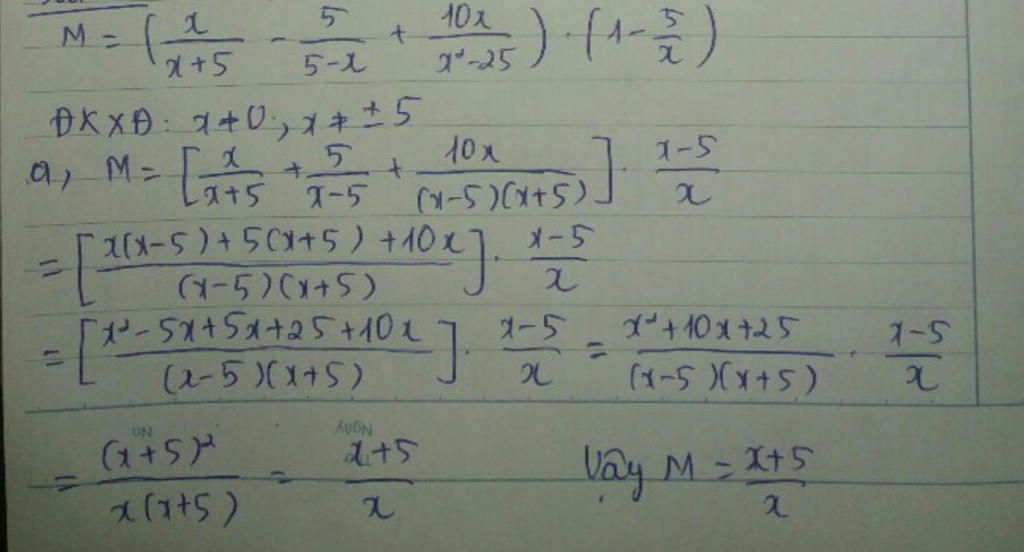 M = ( x/(x+5) - 5/(5-x) + 10x/(x²-25) ) . (1 - 5/x)
ĐKXĐ: x ≠ 0 ; x ≠ ± 5
a, M = [ x/(x+5) + 5/(x-5) + 10x/((x-5)(x+5)) ] . (x-5)/x
= [ (x(x-5) + 5(x+5) + 10x)/((x-5)(x+5)) ] . (x-5)/x
= [ (x² - 5x + 5x + 25 + 10x)/((x-5)(x+5)) ] . (x-5)/x = (x² + 10x + 25)/((x-5)(x+5)) . (x-5)/x
No. Ngày
= (x+5)²/(x(x+5)) = (x+5)/x Vậy M = (x+5)/x